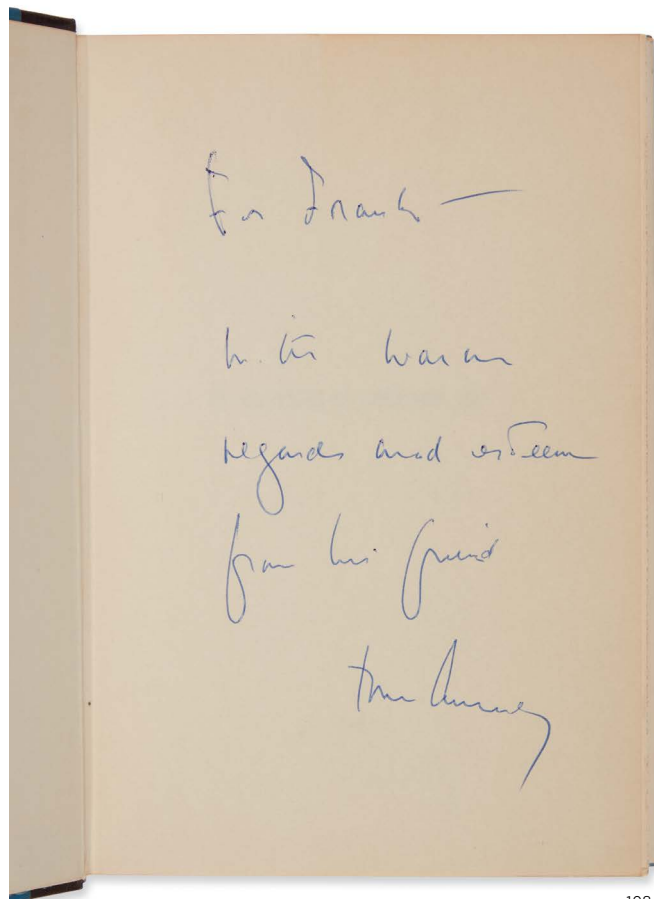 For Frank —
with warm
regards and esteem
from his friend
Tom